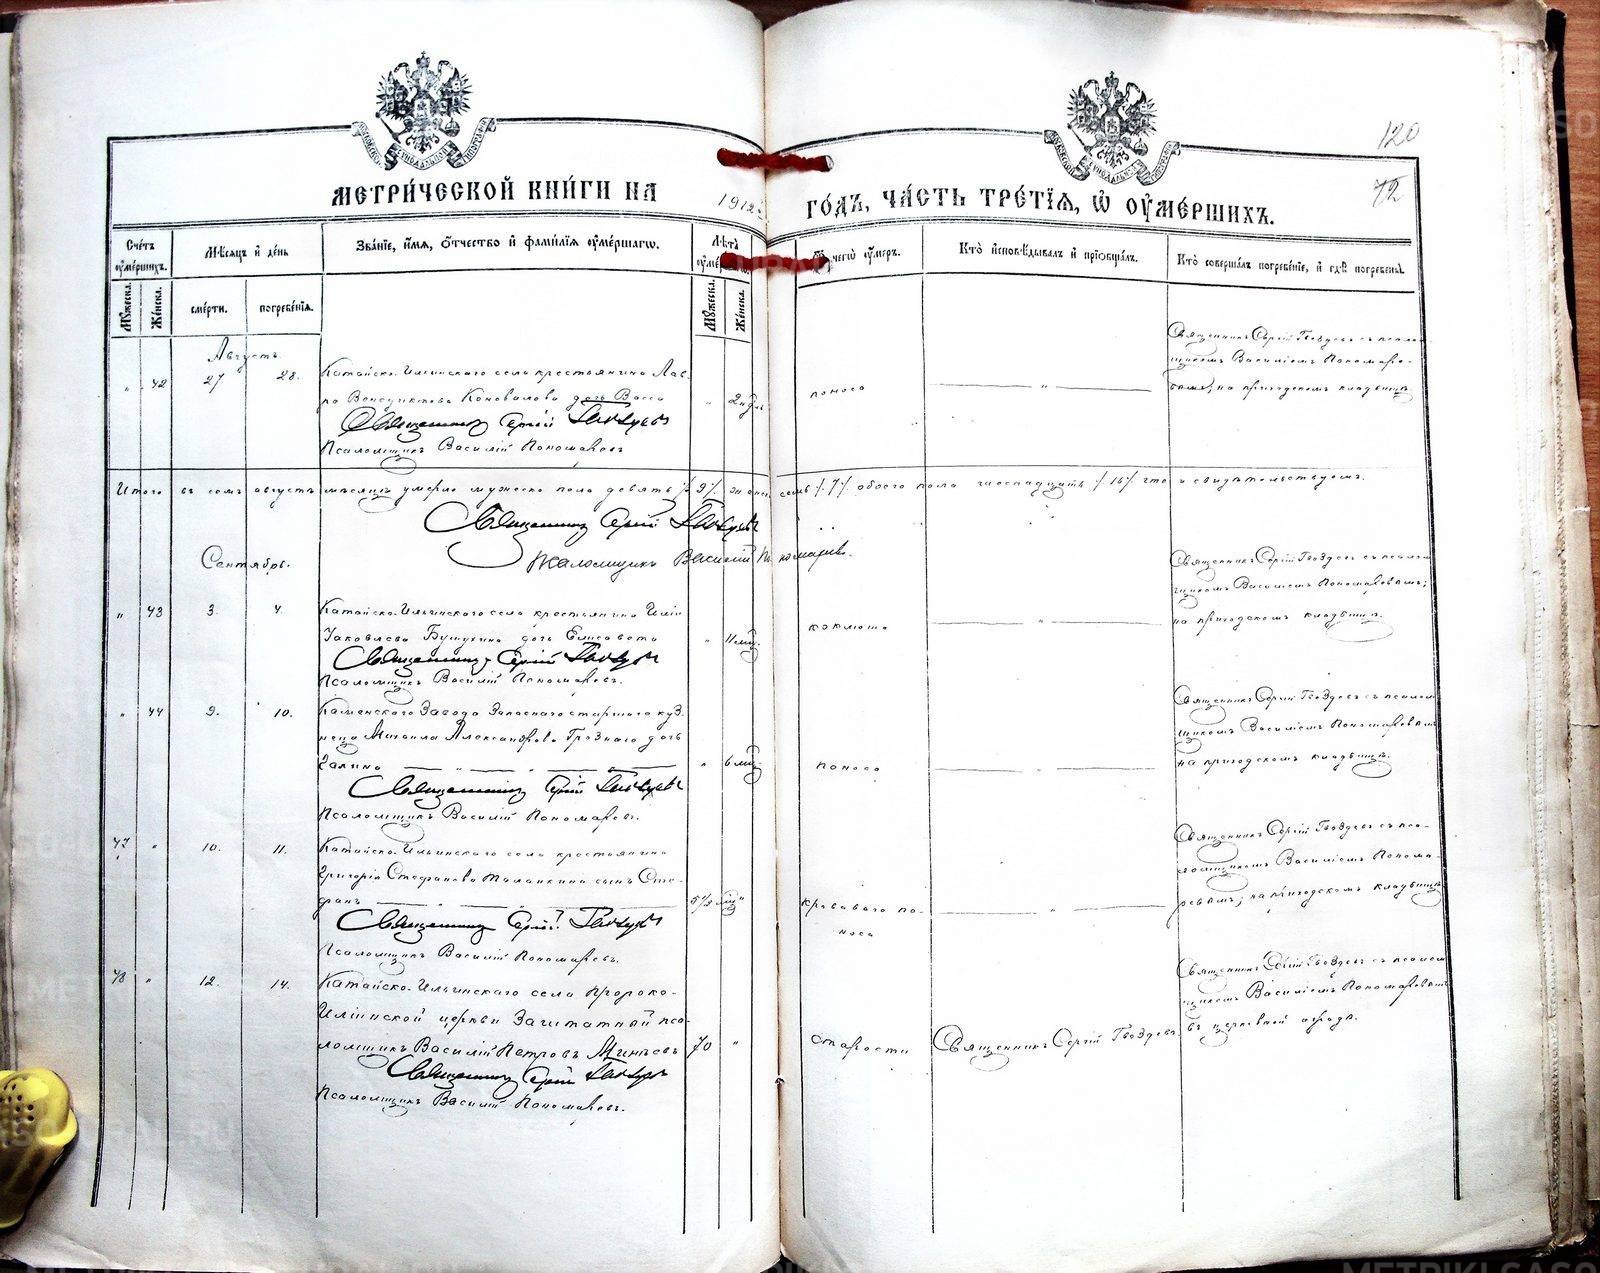 120
72
МЕТРИ́ЧЕСКОЙ КНИ́ГИ НА 1912 г. ГО́ДЪ, ЧА́СТЬ ТРЕ́ТІѦ, Ѡ҆ ОУ҆МЕ́РШИХЪ.
Сче́тъ оу҆ме́ршихъ.
Мѣ́сяцъ и҆ де́нь
Зва́ніе, и҆́мя, ѻ҆́тчество и҆ фами́лія оу҆ме́ршагѡ.
Лѣ́та
Ѿ чегѡ̀ оу҆́меръ.
Кто̀ и҆сповѣ́дывалъ и҆ пріѡбща́лъ.
Кто̀ соверша́лъ погребе́ніе, и҆ гдѣ̀ погребены̀.
Мꙋ́жеска.
Же́нска.
сме́рти.
погребе́нія.
Мꙋ́жеска.
Же́нска.
Августъ.
„ 42 27 28. Катайско-Ильинскаго села крестьянина Лав-
ра Венедиктова Коновалова дочь Васса „ 2 нд. поноса — „ —
Священникъ Сергій Гвоздевъ
Псаломщикъ Василій Пономаревъ
Священникъ Сергій Гвоздевъ съ псалом-
щикомъ Василіемъ Пономаре-
вымъ, на приходскомъ кладбищѣ.
Итого въ семъ августѣ мѣсяцѣ умерло мужеска пола девять /9/ женска семь /7/ обоего пола шестнадцать /16/ что и свидѣтельствуемъ.
Священникъ Сергій Гвоздевъ
Псаломщикъ Василій Пономаревъ.
Сентябрь.
„ 43 3. 4. Катайско-Ильинскаго села крестьянина Иліи
Яковлева дочь Елисавета „ 11 мц. коклюша — „ —
Священникъ Сергій Гвоздевъ
Псаломщикъ Василій Пономаревъ.
Священникъ Сергій Гвоздевъ съ псалом-
щикомъ Василіемъ Пономаревымъ;
на приходскомъ кладбищѣ.
„ 44 9. 10. Каменскаго Завода Запаснаго старшаго куз-
неца Михаила Александрова Грознаго дочь
Галина — „ — „ — „ — „ 6 мц. поноса — „ —
Священникъ Сергій Гвоздевъ
Псаломщикъ Василій Пономаревъ.
Священникъ Сергій Гвоздевъ съ псалом-
щикомъ Василіемъ Пономаревымъ
на приходскомъ кладбищѣ.
47 „ 10. 11. Катайско-Ильинскаго села крестьянина
Григорія Стефанова сынъ Сте-
фанъ — „ — „ — „ — 5½ мц „ кроваваго по-
носа — „ —
Священникъ Сергій Гвоздевъ
Псаломщикъ Василій Пономаревъ.
Священникъ Сергій Гвоздевъ съ пса-
ломщикомъ Василіемъ Понома-
ревымъ; на приходскомъ кладбищѣ
48 „ 12. 14. Катайско-Ильинскаго села Пророко-
Иліинской церкви Заштатный пса-
ломщикъ Василій Петровъ Минѣевъ 70 „ старости Священникъ Сергій Гвоздевъ
Священникъ Сергій Гвоздевъ
Псаломщикъ Василій Пономаревъ.
Священникъ Сергій Гвоздевъ съ псалом-
щикомъ Василіемъ Пономаревымъ
въ церковной оградѣ.